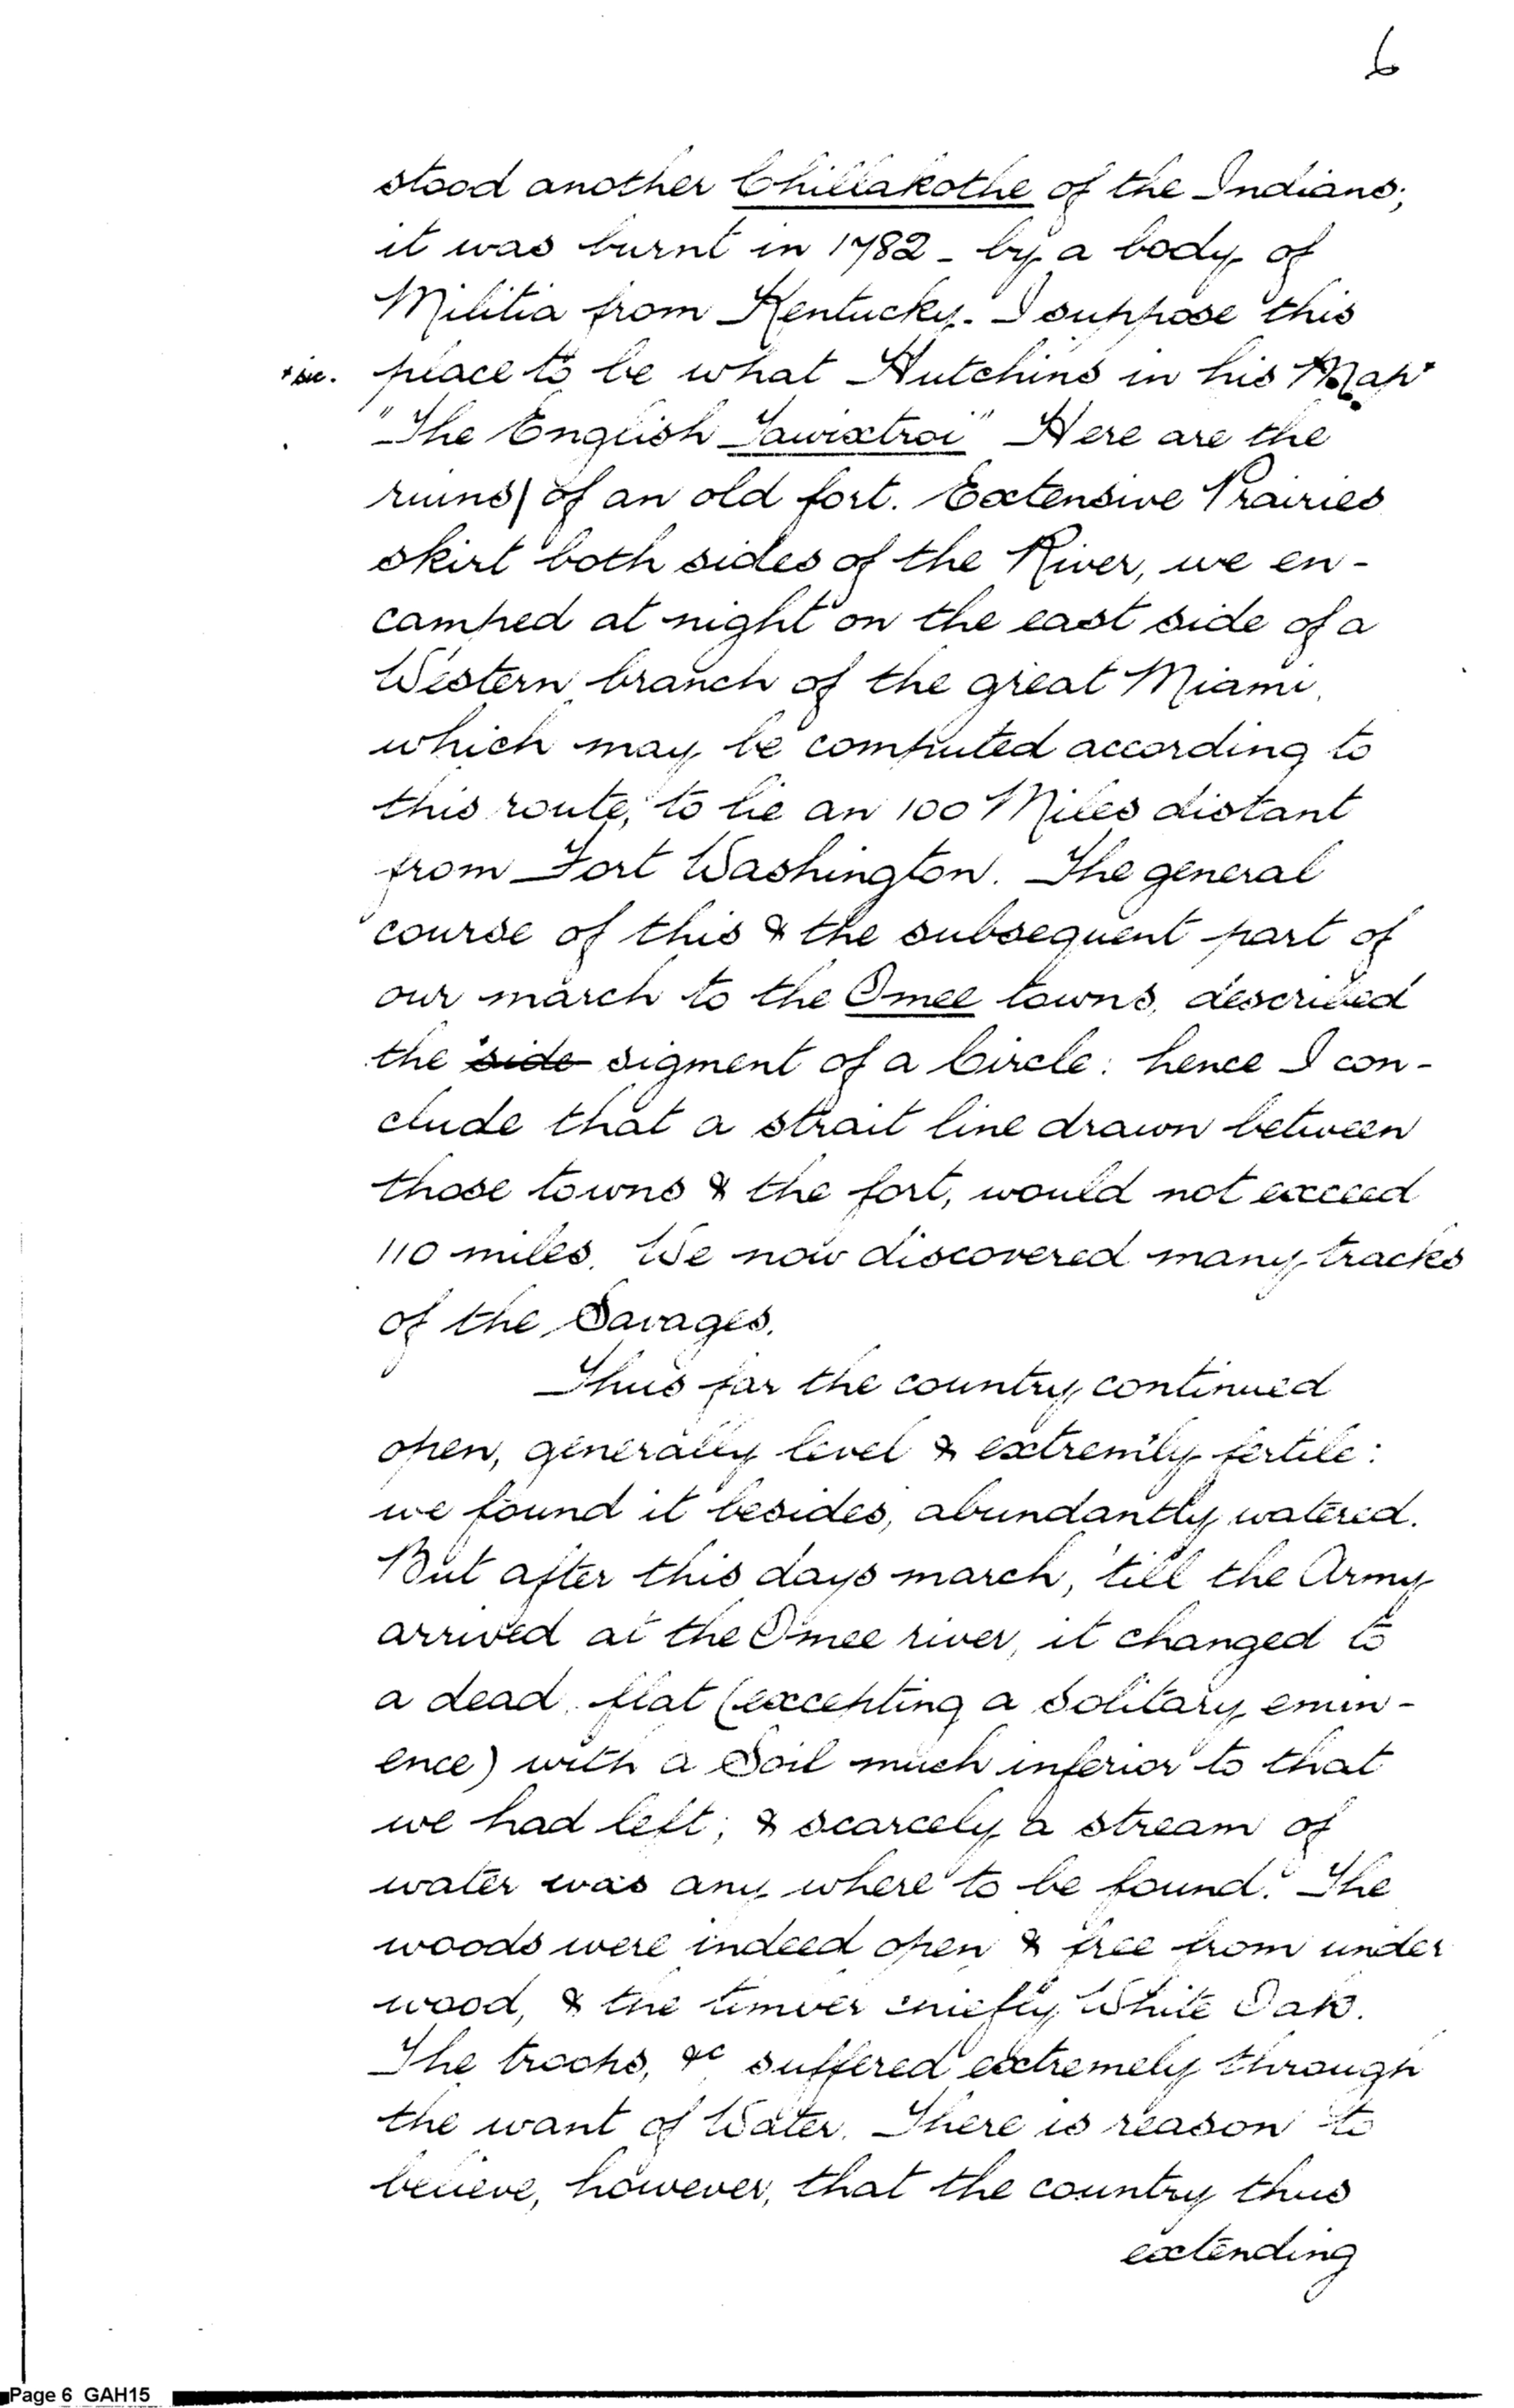 6
stood another Chillakothe of the Indians;
it was burnt in 1782 - by a body of
Militia from Kentucky. I suppose this
+ sic. place to be what Hutchins in his Map +
"The English Tawixtroi" Here are the
ruins| of an old fort. Extensive Prairies
skirt both sides of the River, we en-
camped at night on the east side of a
Western branch of the great Miami,
which may be computed according to
this route, to lie an 100 Miles distant
from Fort Washington. The general
course of this & the subsequent part of
our march to the Omee towns, described
the side sigment of a Circle: hence I con-
clude that a strait line drawn between
those towns & the fort, would not exceed
110 miles. We now discovered many tracks
of the Savages.
Thus far the country continued
open, generally level & extremily fertile:
we found it besides, abundantly watered.
But after this days march, 'till the Army
arrived at the Omee river, it changed to
a dead flat (excepting a Solitary emin-
ence) with a Soil much inferior to that
we had left; & scarcely a stream of
water was any where to be found. The
woods were indeed open & free from under
wood, & the timber chiefly White Oak.
The troops, &c suffered extremely through
the want of Water. There is reason to
believe, however, that the country thus
extending
Page 6 GAH15